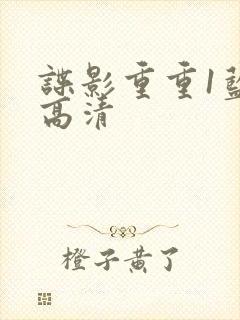 谍影重重1蓝
高清
橙子黄了